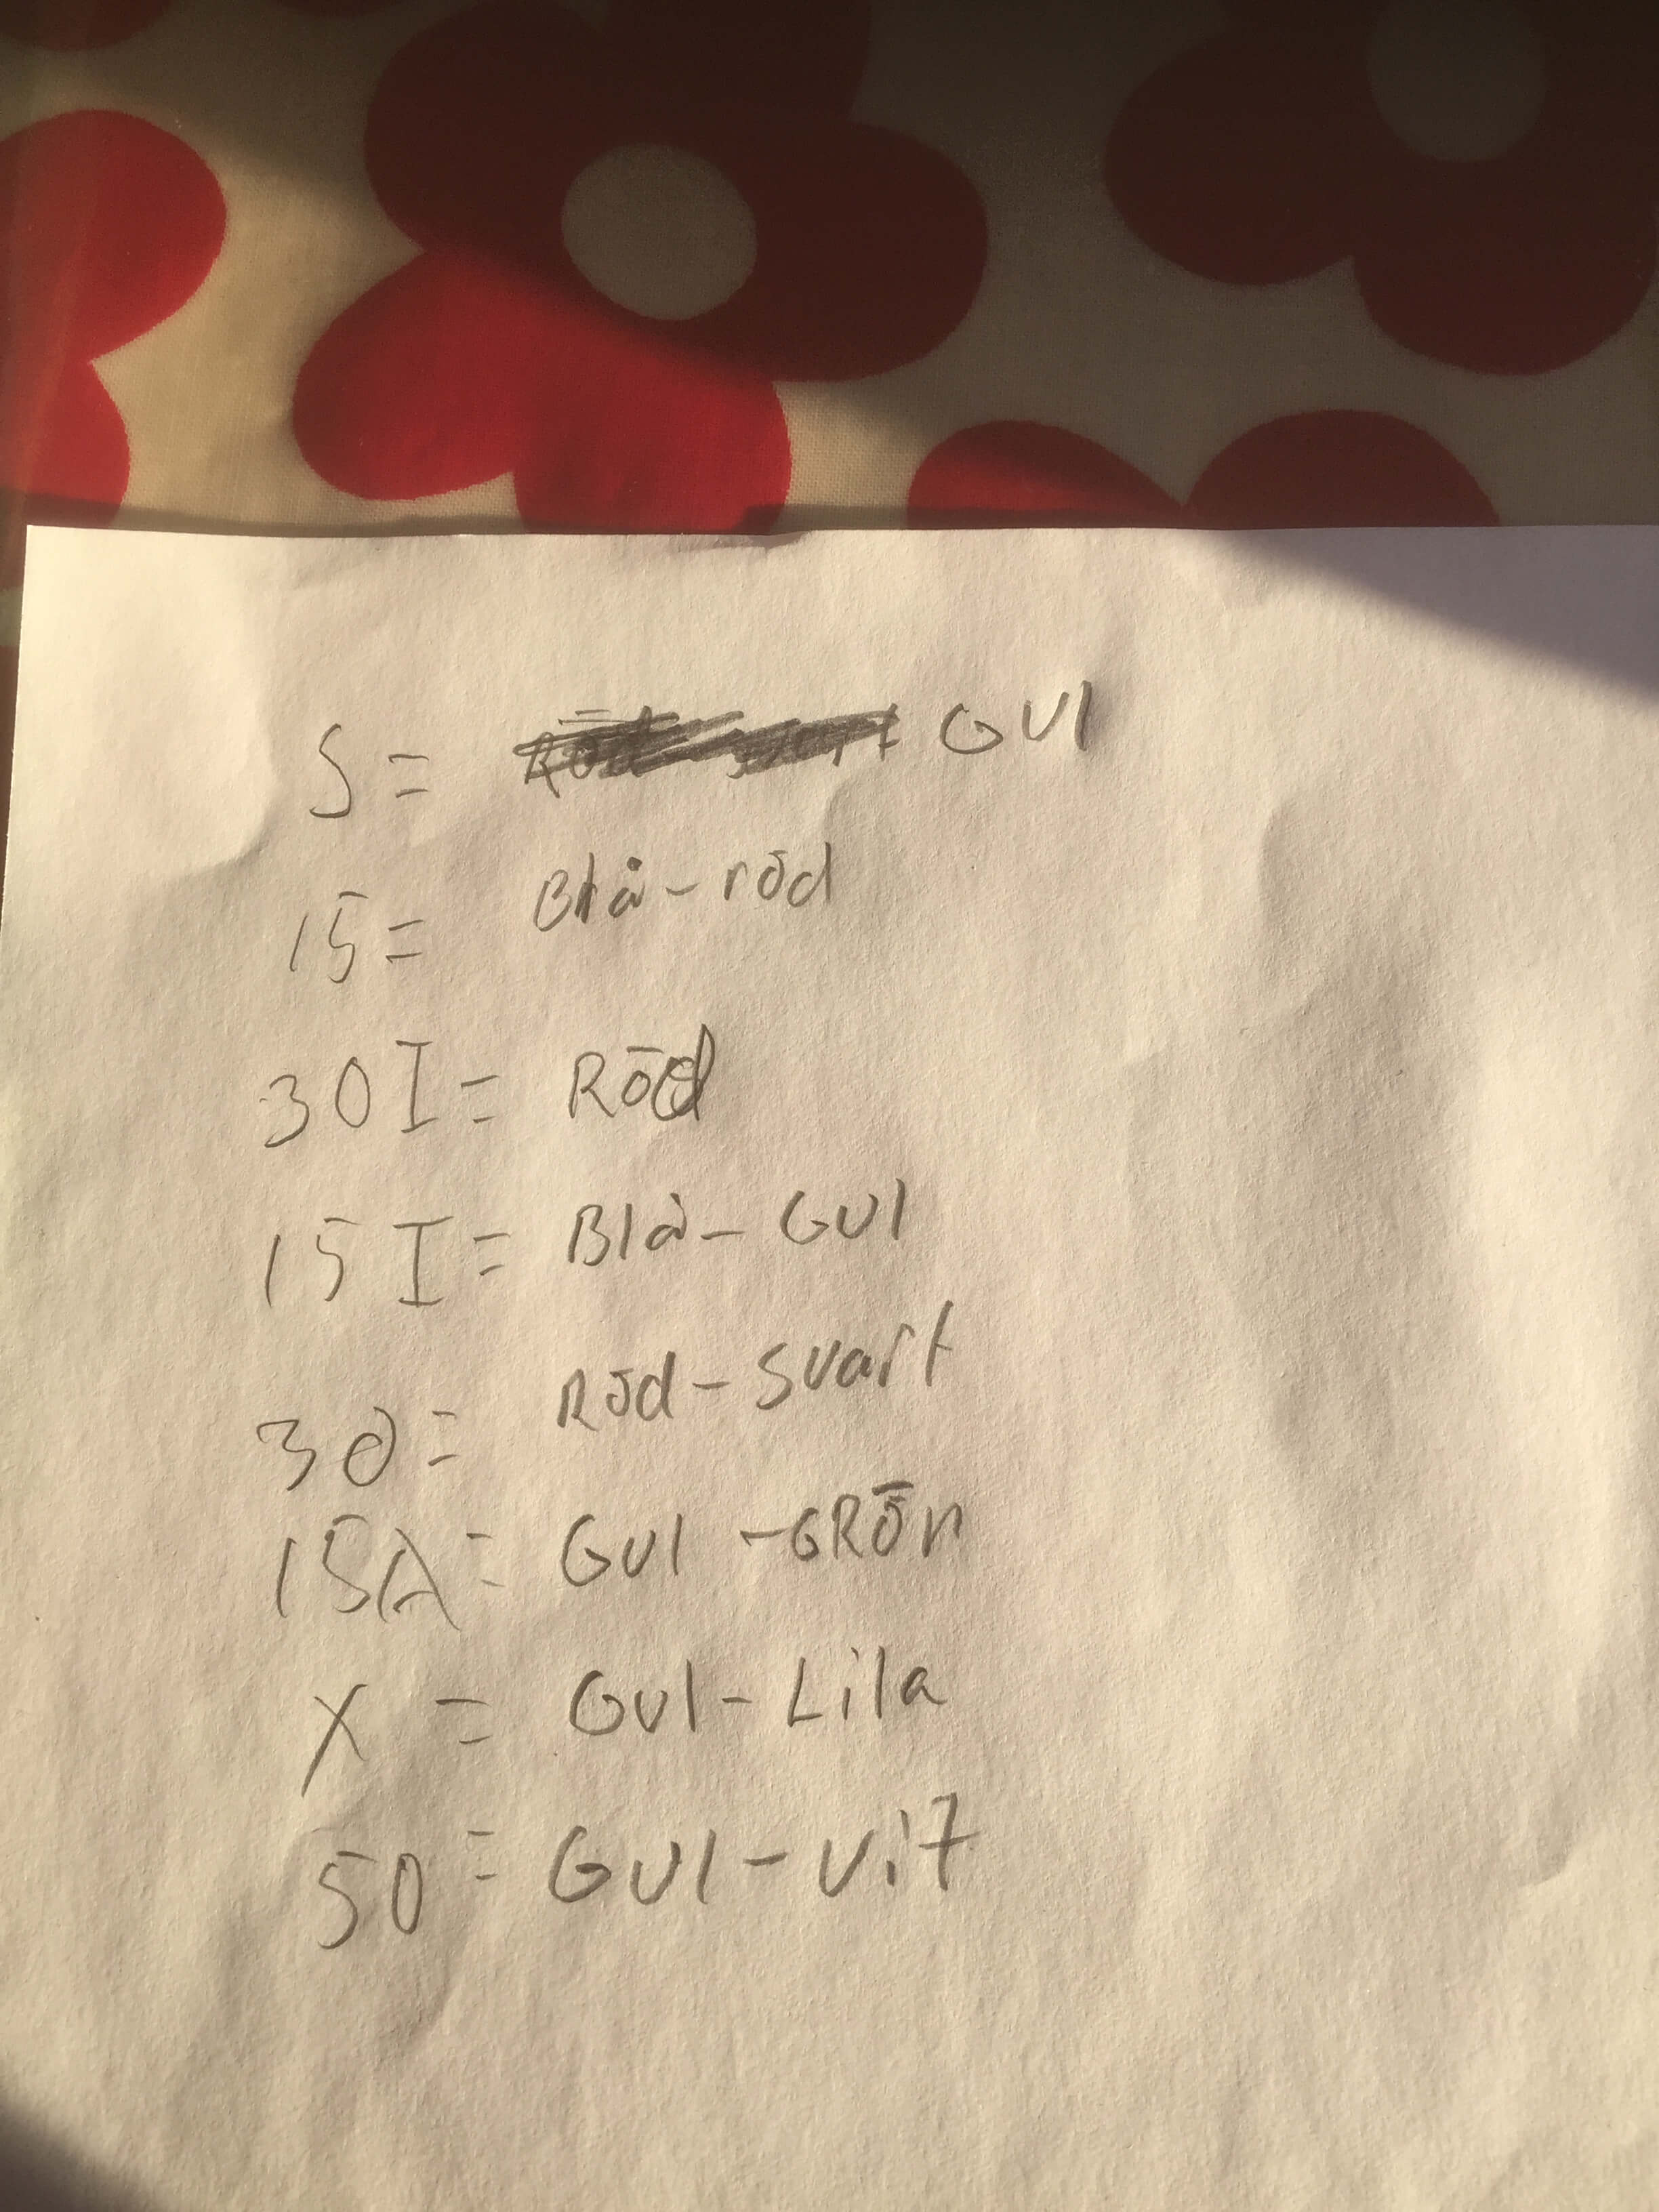 S = GUl
15= Blå-röd
30I= Röd
15I= Blå-GUl
30= Röd-svart
15A= GUl-GRÖn
X = GUl-Lila
50= GUl-vit